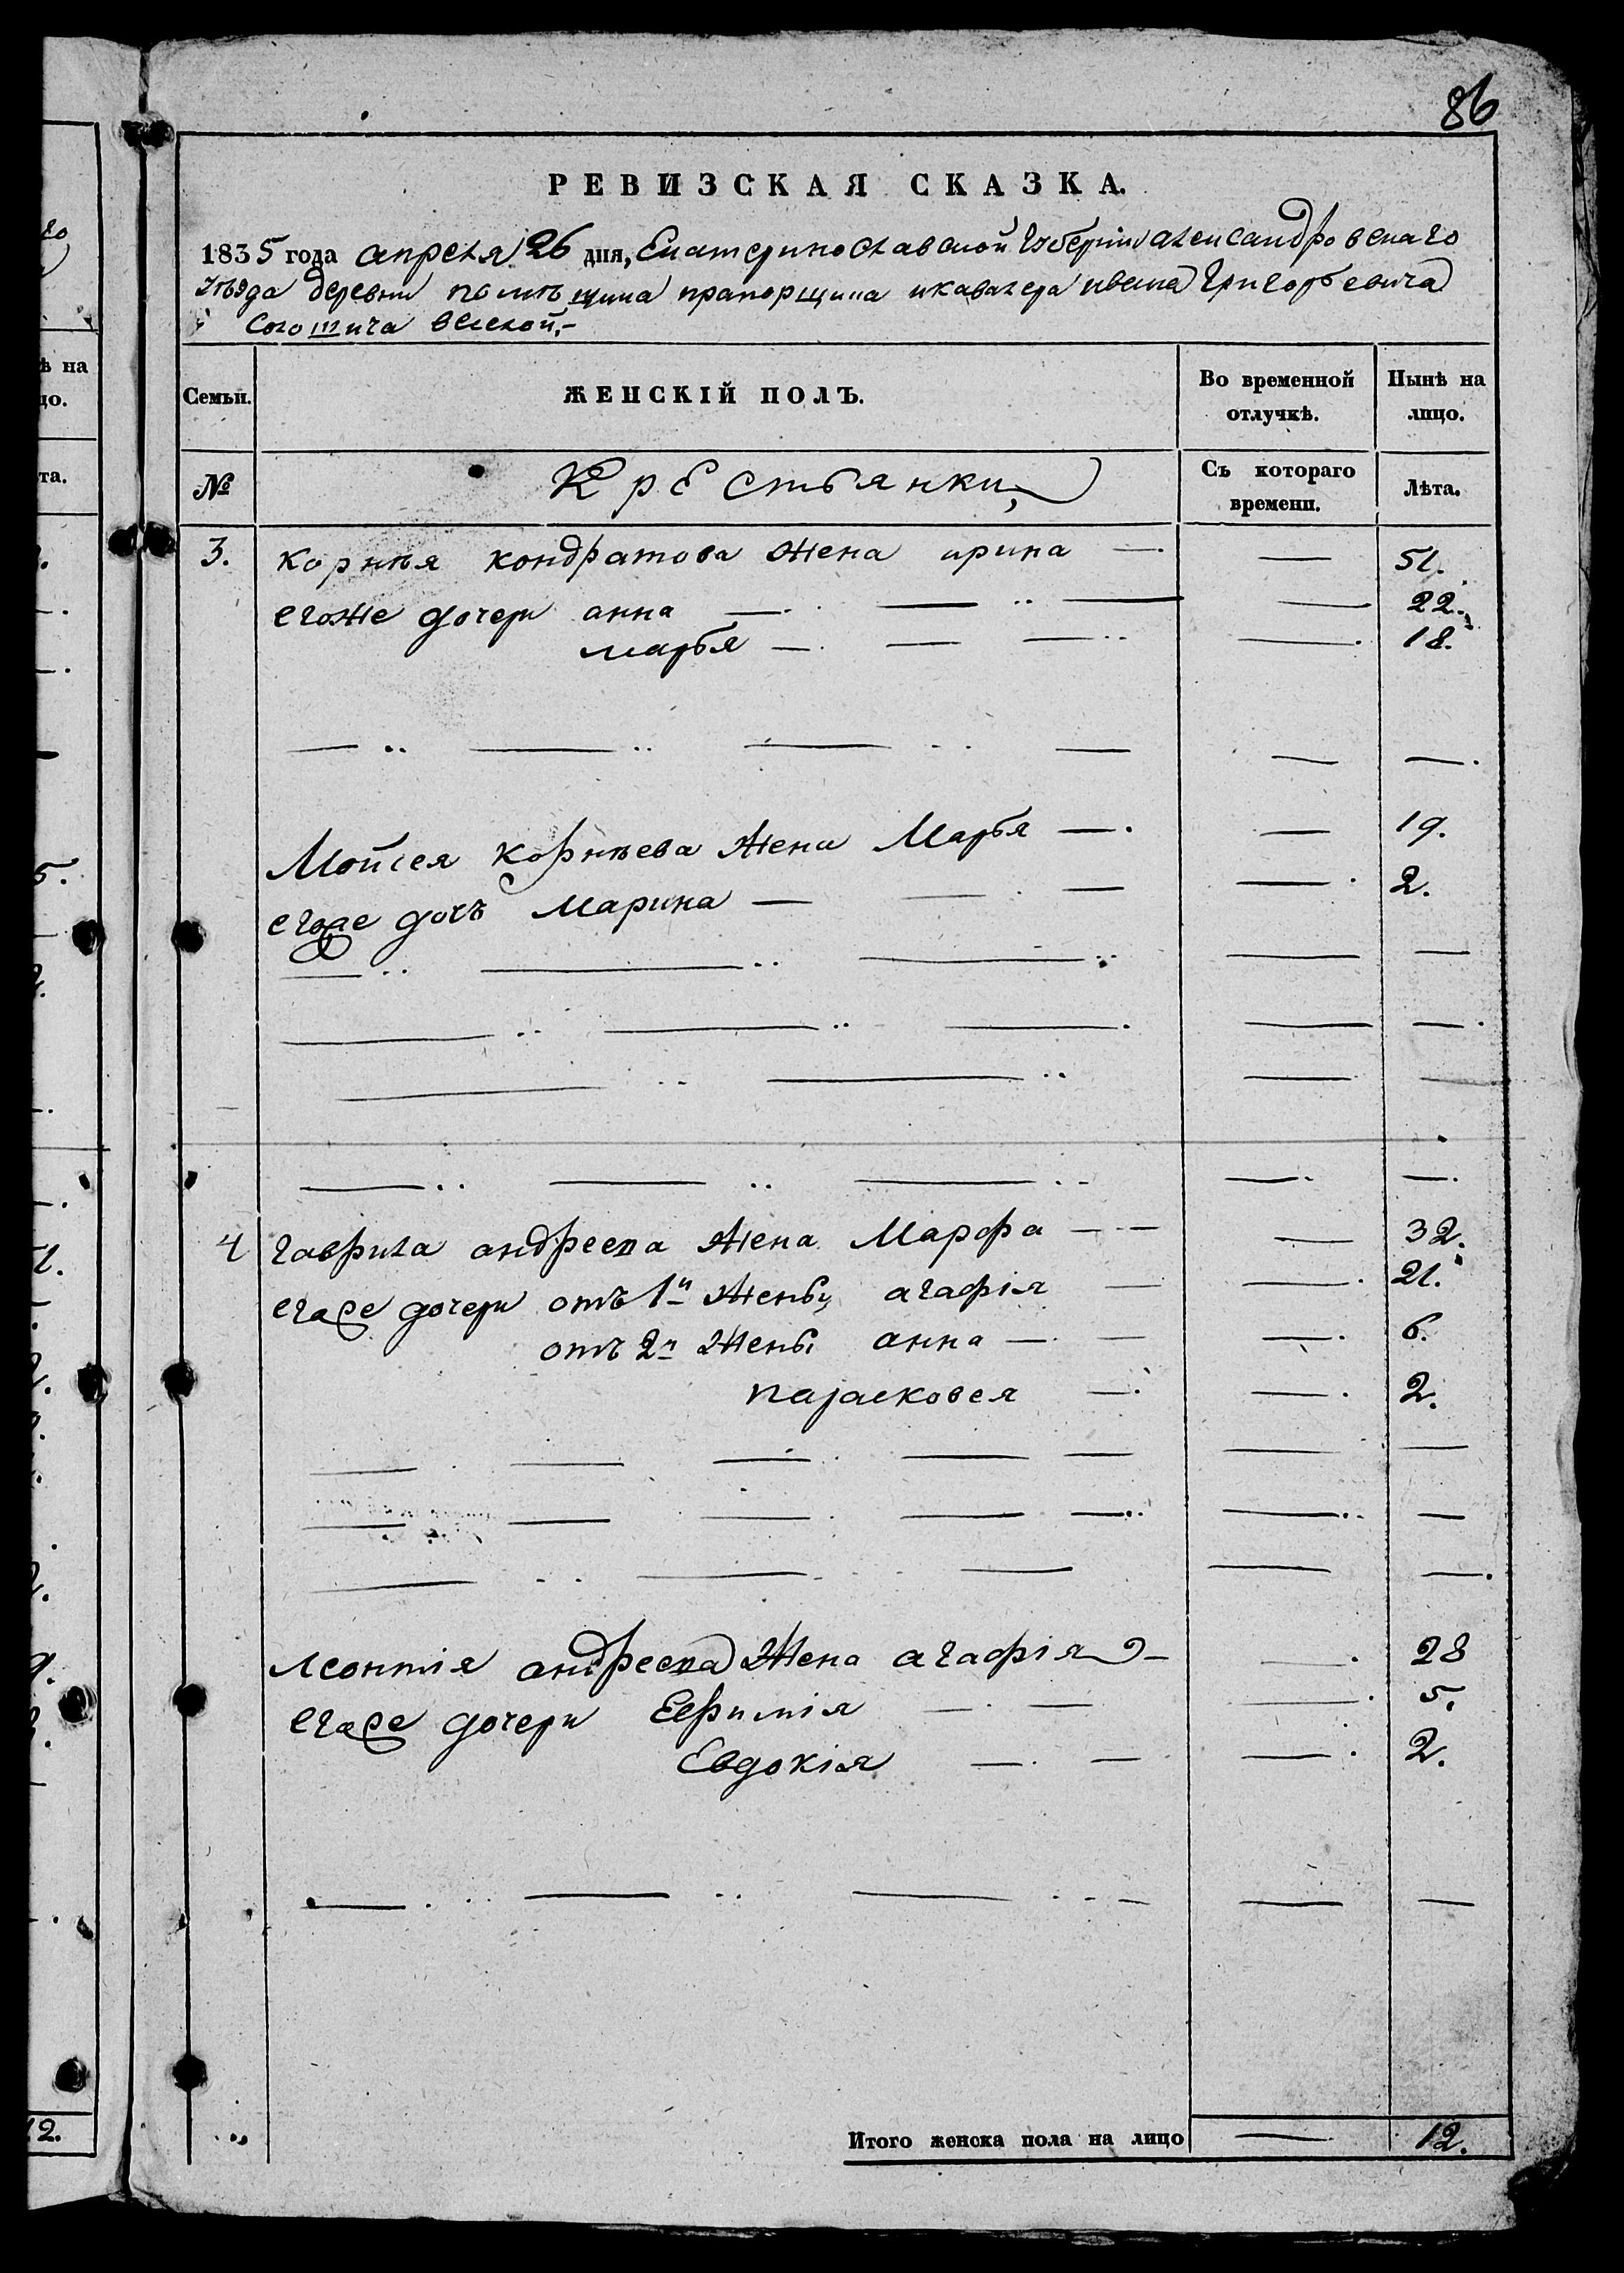 86
РЕВИЗСКАЯ СКАЗКА.
1835 года апреля 26 дня, Екатеринославской Губернiи александровскаго
уѣзда деревни помѣщика прапорщика икавалера ивана Григорьевича
Жѣ на
цо.
та.
Семьи.
ЖЕНСКІЙ ПОЛЪ.
Во временной отлучкѣ.
Нынѣ на лицо.
№
Крестьянки
Съ котораго времени.
Лѣта.
3. Корнѣя кондратова жена ирина — — 51.
егоже дочери анна — — — — 22.
марья — — — — 18.
Мойсея корнѣева жена Марья — — 19.
егоже дочь Марина — — — — 2.
4 гаврила андреева жена Марфа — — — 32.
егоже дочери отъ 1й жены агафiя — — 21.
отъ 2й жены анна — — — 6.
парасковея — — 2.
леонтiя андреева жена агафiя — — 28
егоже дочери Ефимiя — — — 5.
Евдокiя — — — 2.
Итого женска пола на лицо — 12.
12.